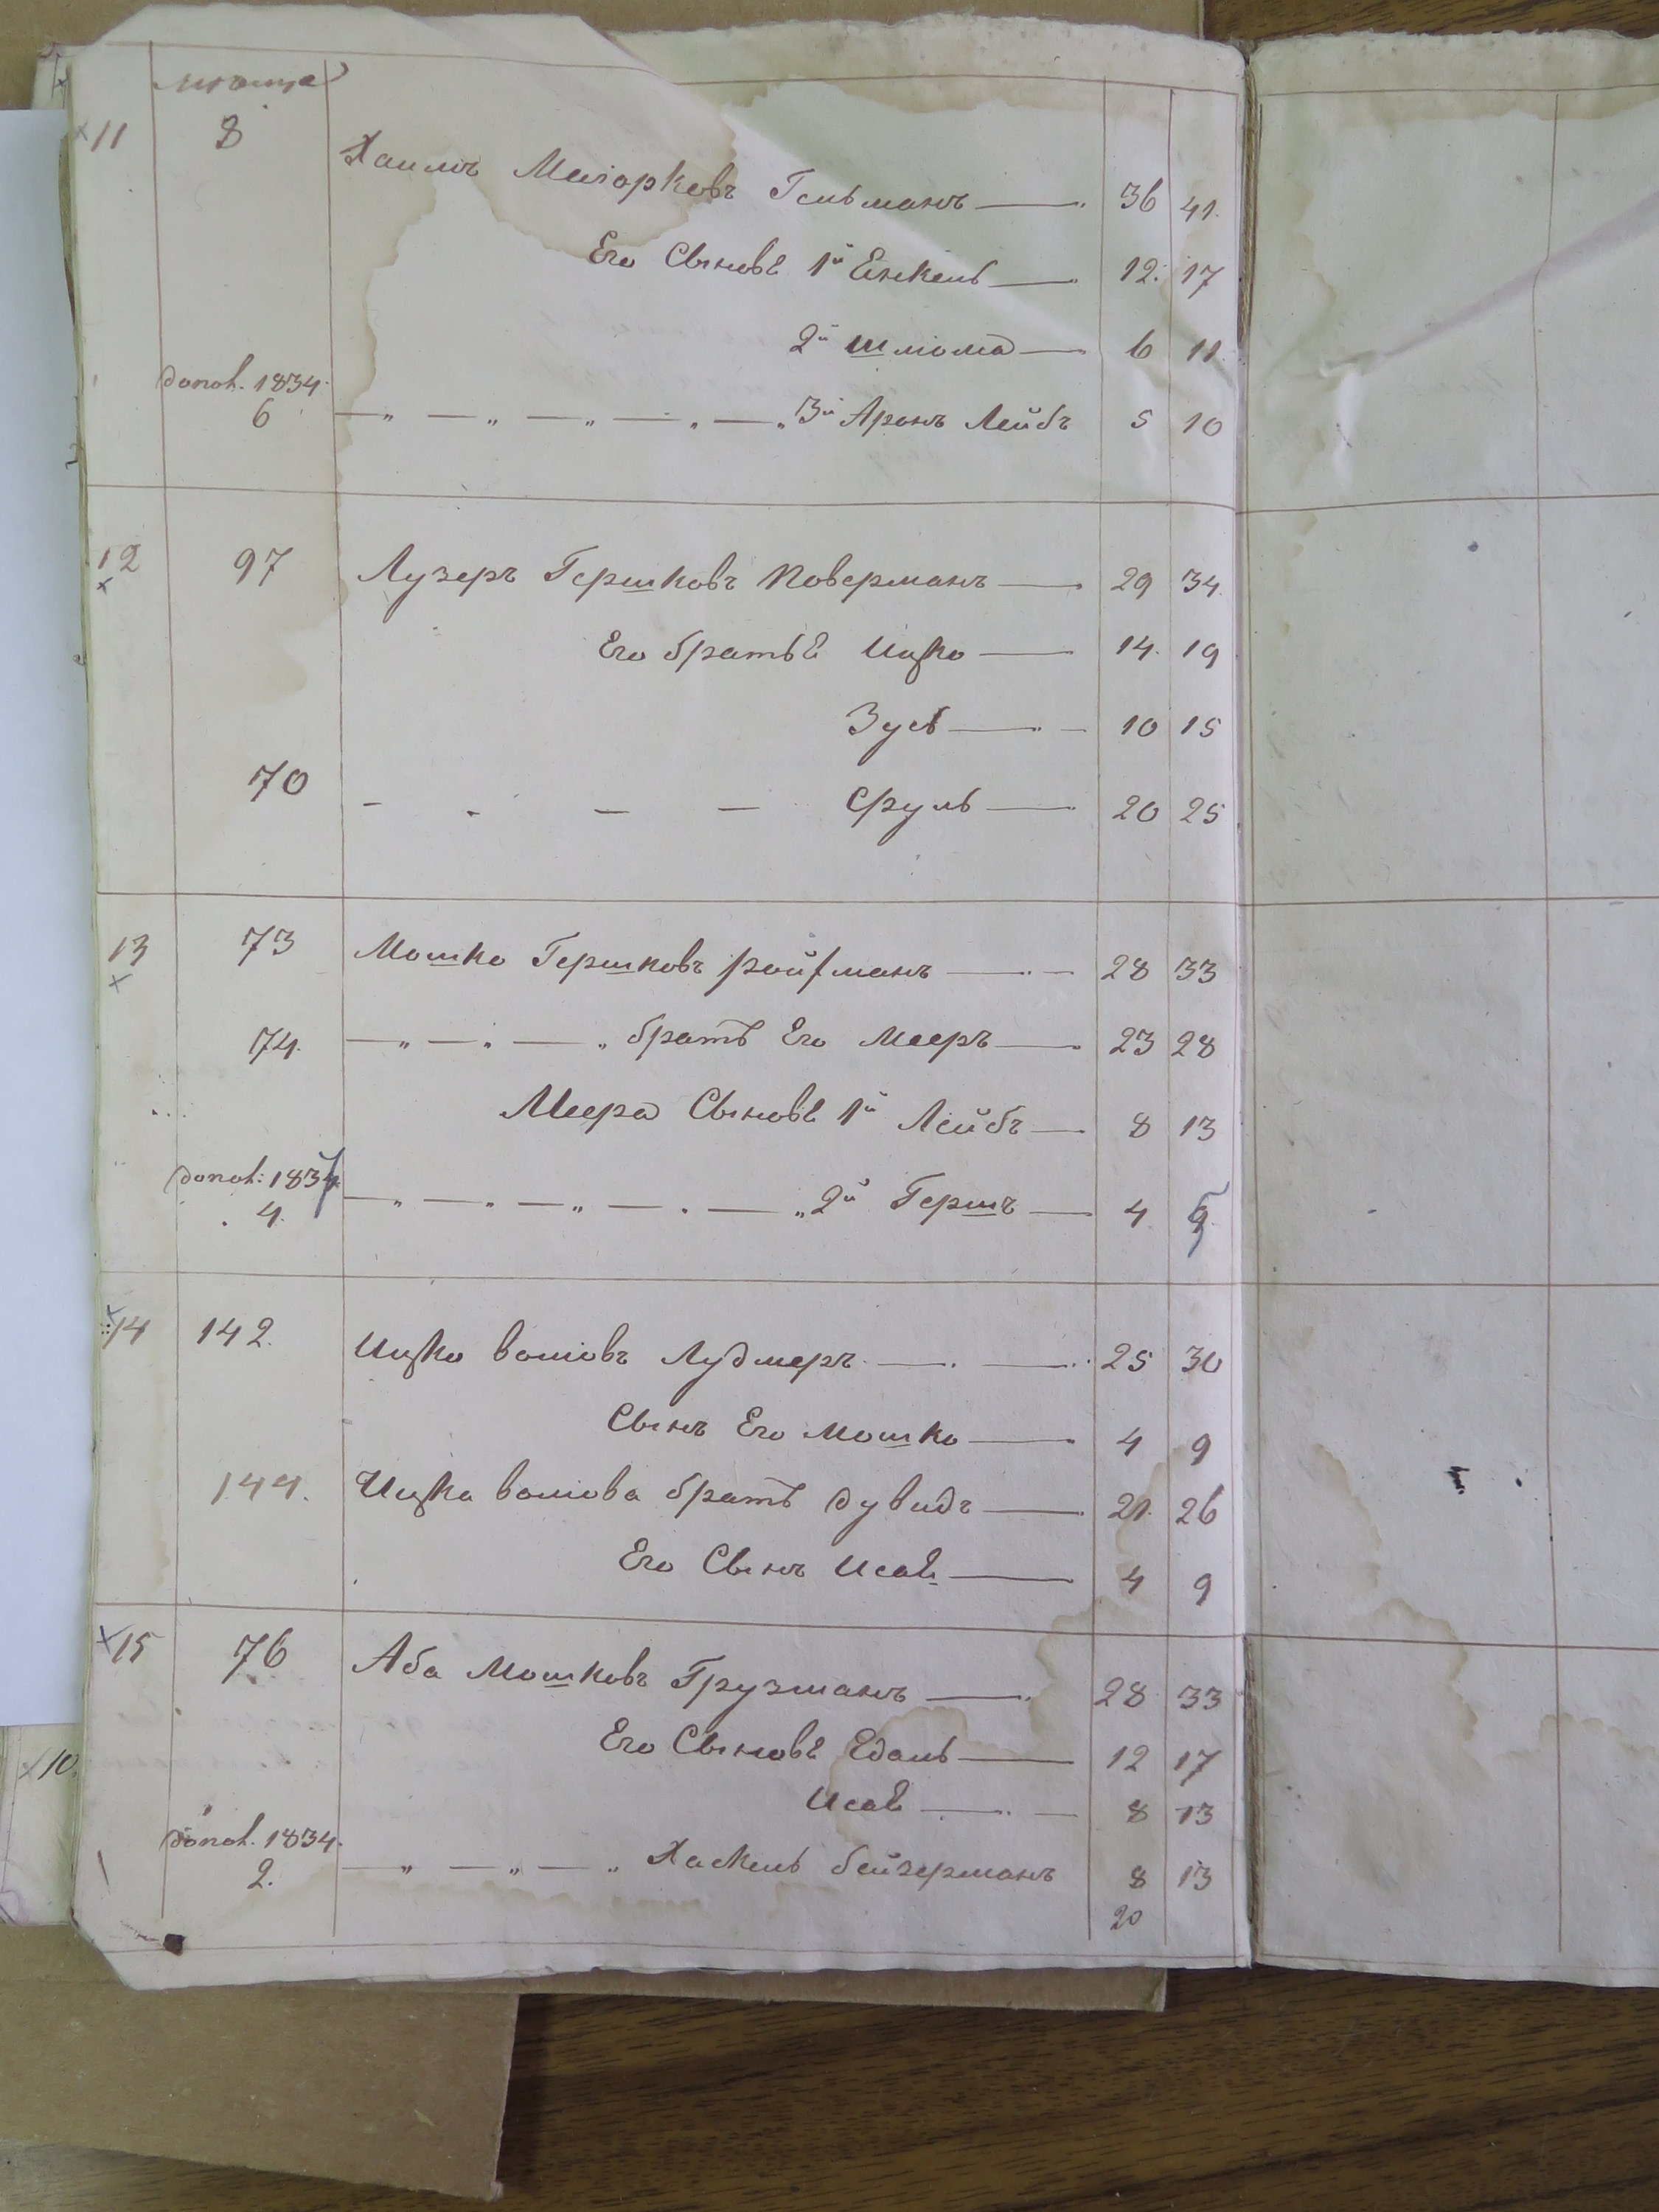 11 8 Хаимъ Маіорковъ Гельманъ 36 41.
Его Сыновѣ 1й Енкель 12. 17
2й Шлома 6 11
допол. 1834.
6 3й Аронъ Лейбъ 5 10
12 97 Лузеръ Гершковъ Коверманъ 29 34.
Его братьѣ Ицко 14. 19
Зусь 10 15
70 Сруль 20 25
13 73 Мошко Гершковъ Ройфманъ 28 33
74. братъ Его Мееръ 23 28
Меера Сыновѣ 1й Лейбъ 8 13
допол: 1834.
4. 2й Гершъ 4 9
14 142. Ицко Волиовъ Лудмеръ 25 30
Сынъ Его Мошко 4 9
144. Ицка Волиова братъ Дувидъ 21. 26
Его Сынъ Исак 4 9
15 76 Аба Мошковъ Грузманъ 28 33
Его Сыновѣ Едаль 12 17
Исак 8 13
допол. 1834.
2. Хаскель Бейзерманъ 8 13
20
10.